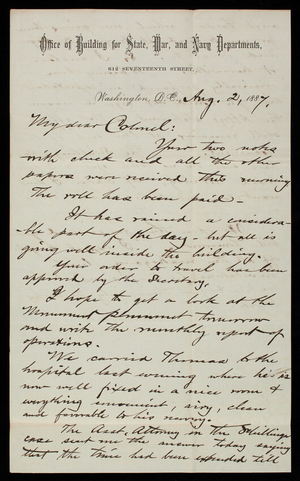 Office of Building for State, War, and Navy Departments,
612 SEVENTEENTH STREET,
Washington, D.C., Aug. 2, 1887.
My dear Colonel:
Your two notes
with check and all the other
papers were received this morning
The roll has been paid -
It has rained a considera-
ble part of the day - but all is
going well inside the building.
Your order to travel has been
approved by the Secretary.
I hope to get a look at the
Monument tomorrow
and write the monthly report of
operations.
We carried Thomas to the
hospital last evening where he is
now well fixed in a nice room &
everything convenient, airy, clean
and favorable to his recovery.
The Asst. Attorney in the Shillings
case sent me the answer today saying
that the time had been extended till